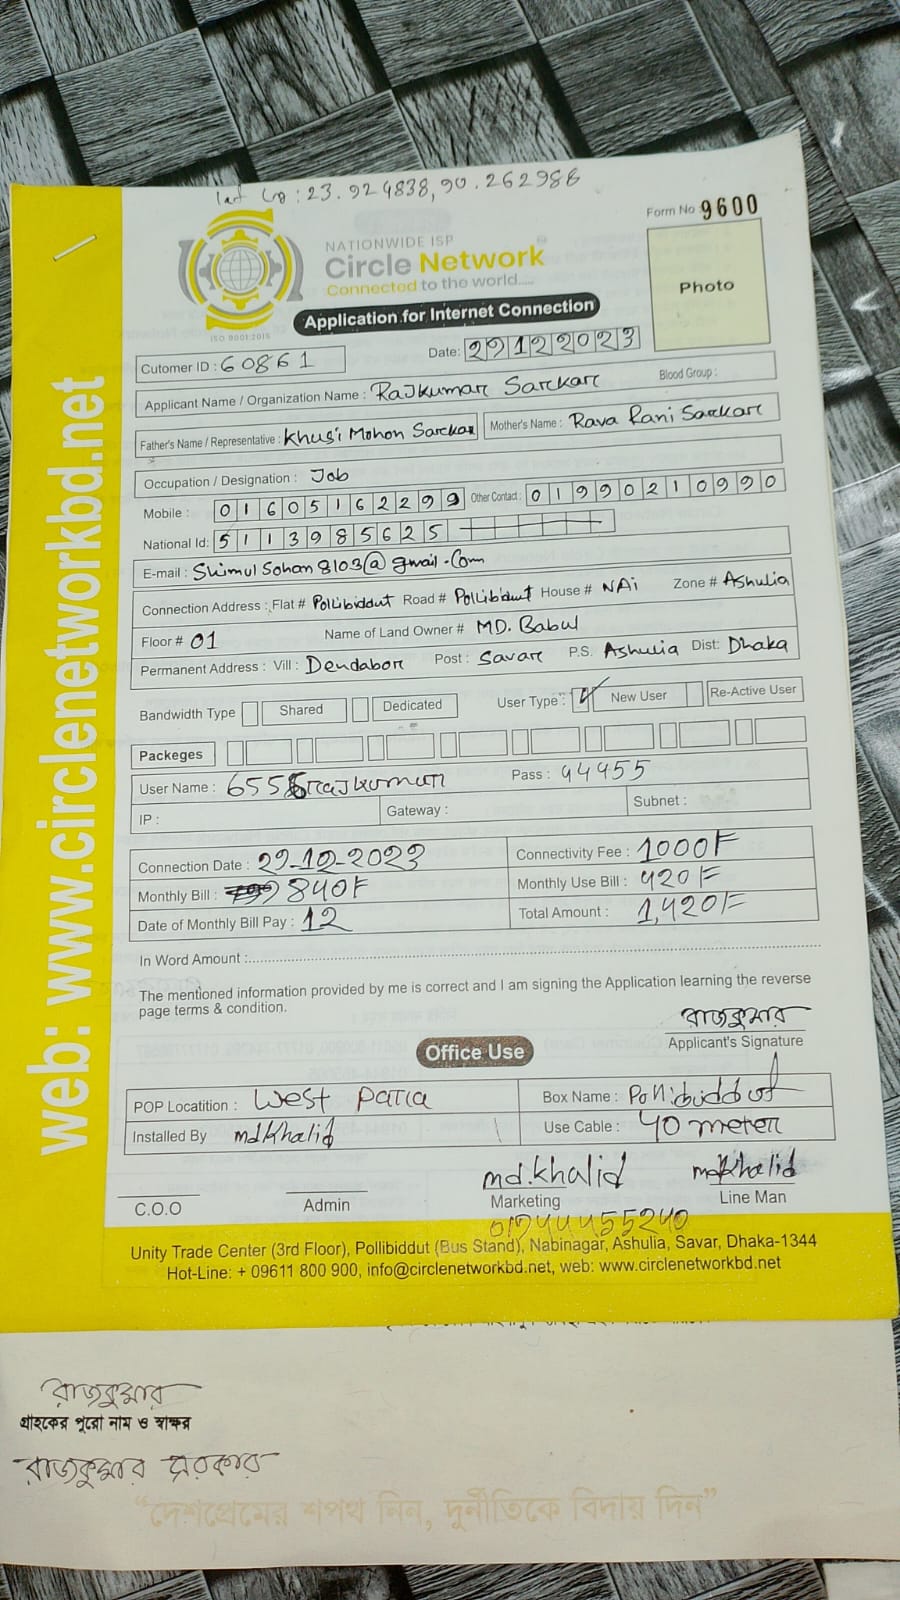 lat lng : 23.924838, 90.262986
Form No 9600
NATIONWIDE ISP
Circle Network
Connected to the world.....
ISO 9001:2015
Photo
Application for Internet Connection
Date: 29122023
Cutomer ID : 60861
Applicant Name / Organization Name : Rajkumar Sarkar Blood Group :
Father's Name / Representative : Khusi Mohon Sarkar Mother's Name : Rava Rani Sarkar
Occupation / Designation : Job
Mobile : 01605162299 Other Contact : 01990210990
National Id: 5113985625
E-mail : Shimulsohan8103@gmail.com
Connection Address : Flat # Pollibiddut Road # Pollibidut House # NAi Zone # Ashulia
Floor # 01 Name of Land Owner # MD. Babul
Permanent Address : Vill : Dendabor Post : Savar P.S. Ashulia Dist: Dhaka
Bandwidth Type Shared Dedicated User Type : New User Re-Active User
Packeges
User Name : rajkumar Pass : 44455
IP : Gateway : Subnet :
Connection Date : 29-12-2023 Connectivity Fee : 1000/=
Monthly Bill : 840/= Monthly Use Bill : 420/=
Date of Monthly Bill Pay : 12 Total Amount : 1,420/=
In Word Amount :
The mentioned information provided by me is correct and I am signing the Application learning the reverse
page terms & condition.
রাজকুমার
Applicant's Signature
Office Use
POP Locatition : West Para Box Name : Pollibuddut
Installed By md.khalid Use Cable : 40 meter
md.khalid md.khalid
C.O.O Admin Marketing Line Man
Unity Trade Center (3rd Floor), Pollibiddut (Bus Stand), Nabinagar, Ashulia, Savar, Dhaka-1344
Hot-Line: + 09611 800 900, info@circlenetworkbd.net, web: www.circlenetworkbd.net
web: www.circlenetworkbd.net
রাজকুমার
গ্রাহকের পুরো নাম ও স্বাক্ষর
রাজকুমার সরকার
“দেশপ্রেমের শপথ নিন, দুর্নীতিকে বিদায় দিন”